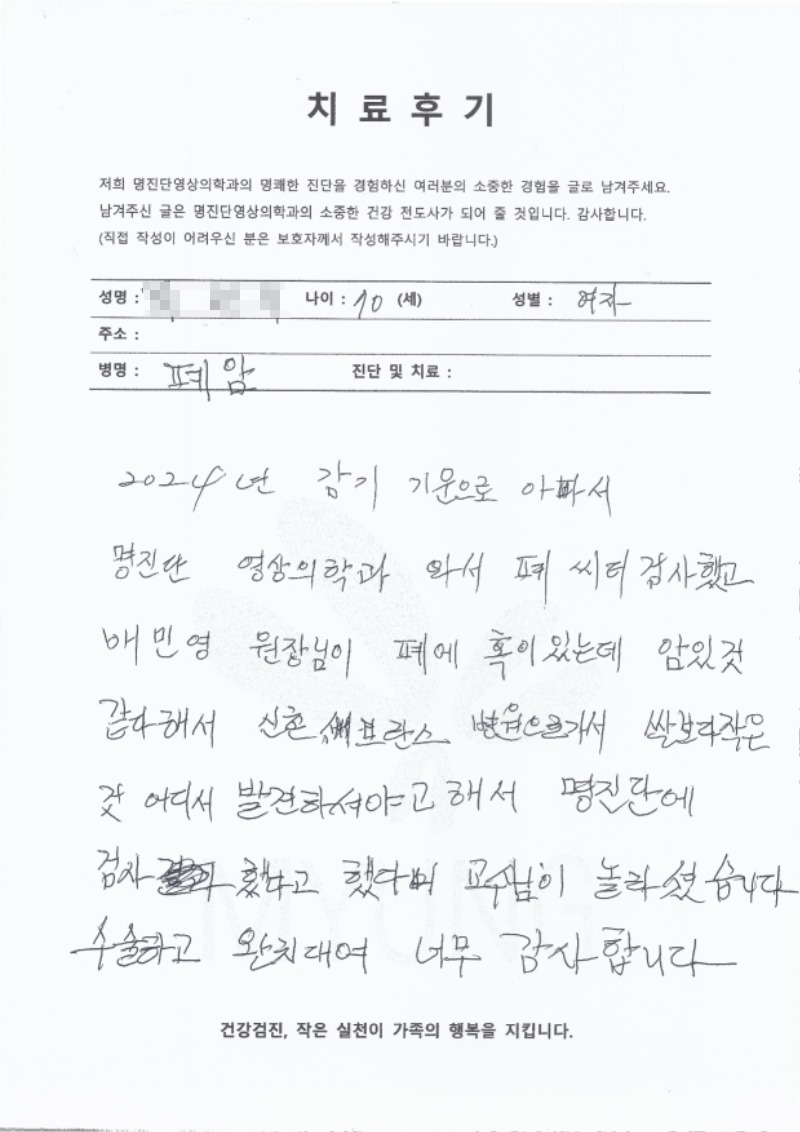 치료후기
저희 명진단영상의학과의 명쾌한 진단을 경험하신 여러분의 소중한 경험을 글로 남겨주세요.
남겨주신 글은 명진단영상의학과의 소중한 건강 전도사가 되어 줄 것입니다. 감사합니다.
(직접 작성이 어려우신 분은 보호자께서 작성해주시기 바랍니다.)
성명 : 나이 : 70 (세) 성별 : 여자
주소 :
병명 : 폐암 진단 및 치료 :
2024년 감기 기운으로 아파서
명진단 영상의학과 와서 폐 씨터 검사했고
배민영 원장님이 폐에 혹이있는데 암있것
같다해서 신촌 세브란스 병원으로가서 쌀보다작은
것 어디서 발견하셔야고 해서 명진단에
검사 했다고 했다며 교수님이 놀라셨습니다
수술하고 완치대여 너무 감사합니다
MYUNG
건강검진, 작은 실천이 가족의 행복을 지킵니다.